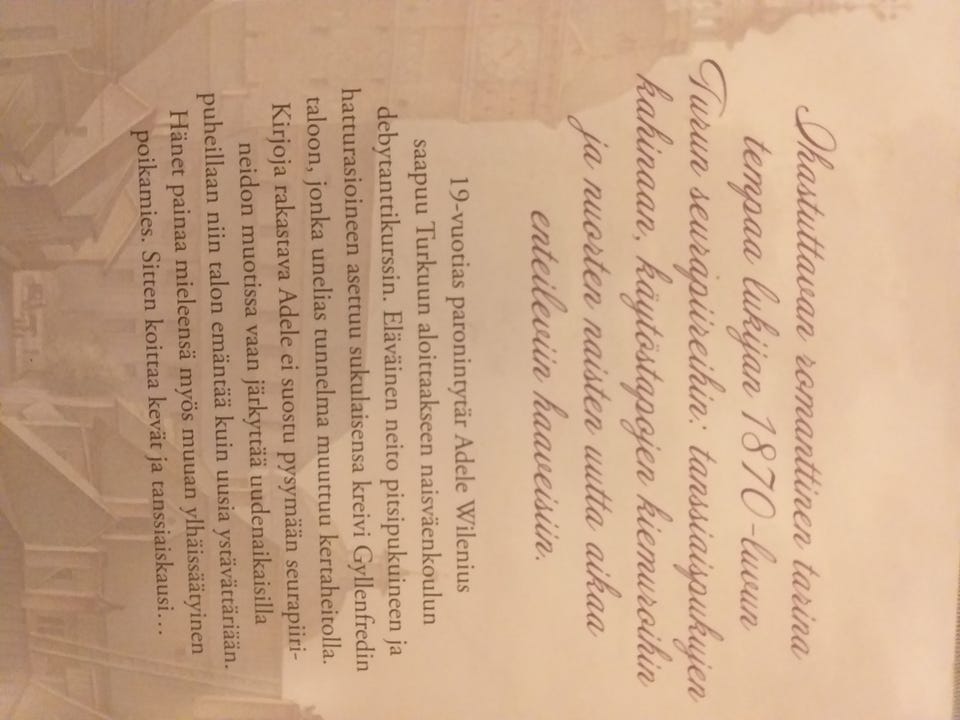 Ihastuttavan romanttinen tarina
tempaa lukijan 1870-luvun
Turun seurapiireihin: tanssiaispukujen
kahinaan, käytöstapojen kiemuroihin
ja nuorten naisten uutta aikaa
enteileviin haaveisiin.
19-vuotias paronintytär Adele Wilenius
saapuu Turkuun aloittaakseen naisväenkoulun
debytanttikurssin. Eläväinen neito pitsipukuineen ja
hatturasioineen asettuu sukulaisensa kreivi Gyllenfredin
taloon, jonka unelias tunnelma muuttuu kertaheitolla.
Kirjoja rakastava Adele ei suostu pysymään seurapiiri-
neidon muotissa vaan järkyttää uudenaikaisilla
puheillaan niin talon emäntää kuin uusia ystävättäriään.
Hänet painaa mieleensä myös muuan ylhäissäätyinen
poikamies. Sitten koittaa kevät ja tanssiaiskausi...